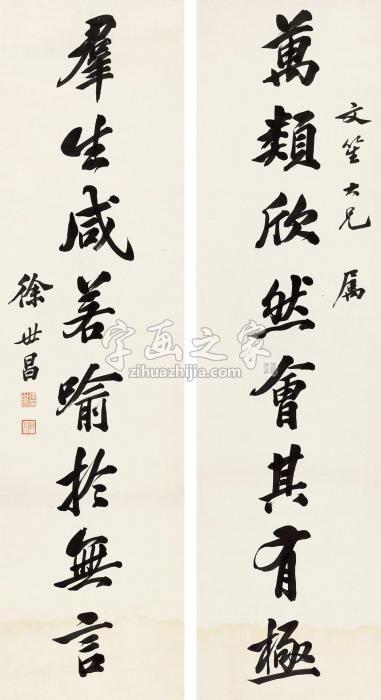 文笙大兄 属
萬類欣然會其有極
羣生咸若喻於無言
徐世昌
字画之家
zihuazhijia.com